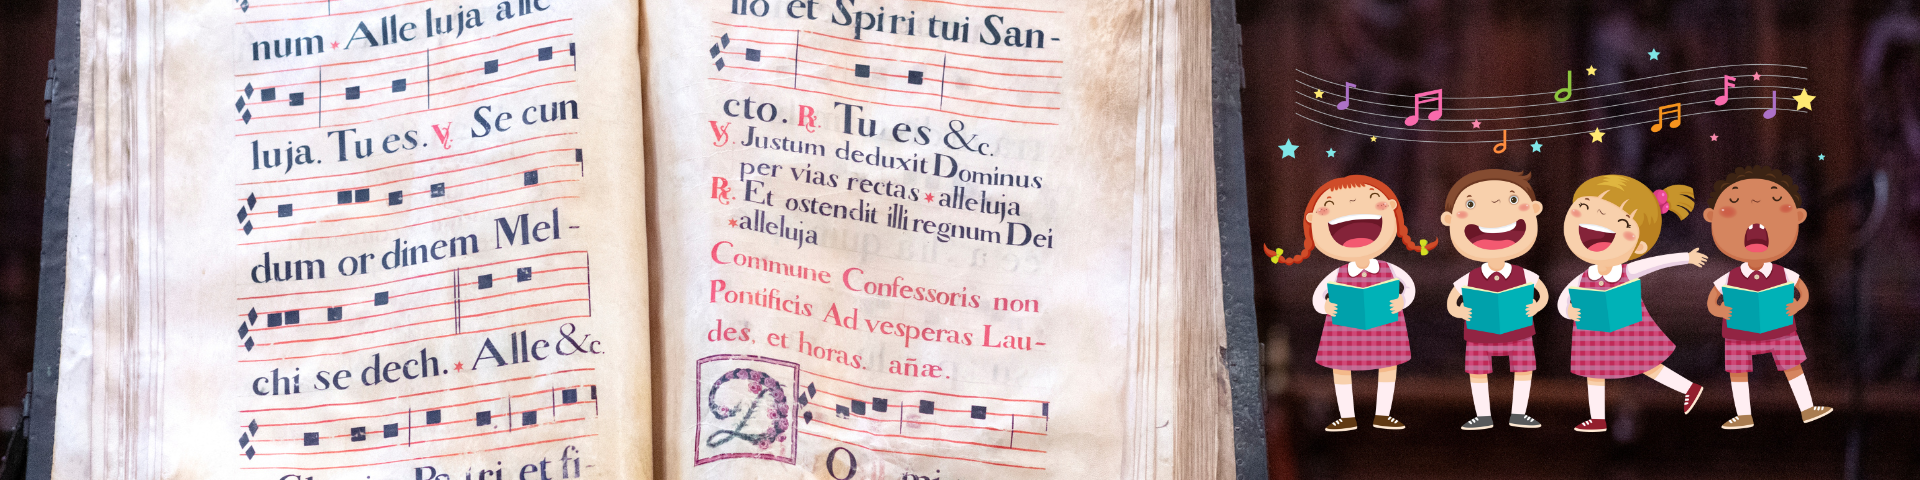 num * Alle luja alle
luja. Tu es. ℣. Se cun
dum or dinem Mel-
chi se dech. * Alle &c.
Patri et fi-
no et Spiri tui San-
cto. ℟. Tu es &c.
℣. Justum deduxit Dominus
per vias rectas * alleluja
℟. Et ostendit illi regnum Dei
* alleluja
Commune Confessoris non
Pontificis Ad vesperas Lau-
des, et horas. añæ.
D